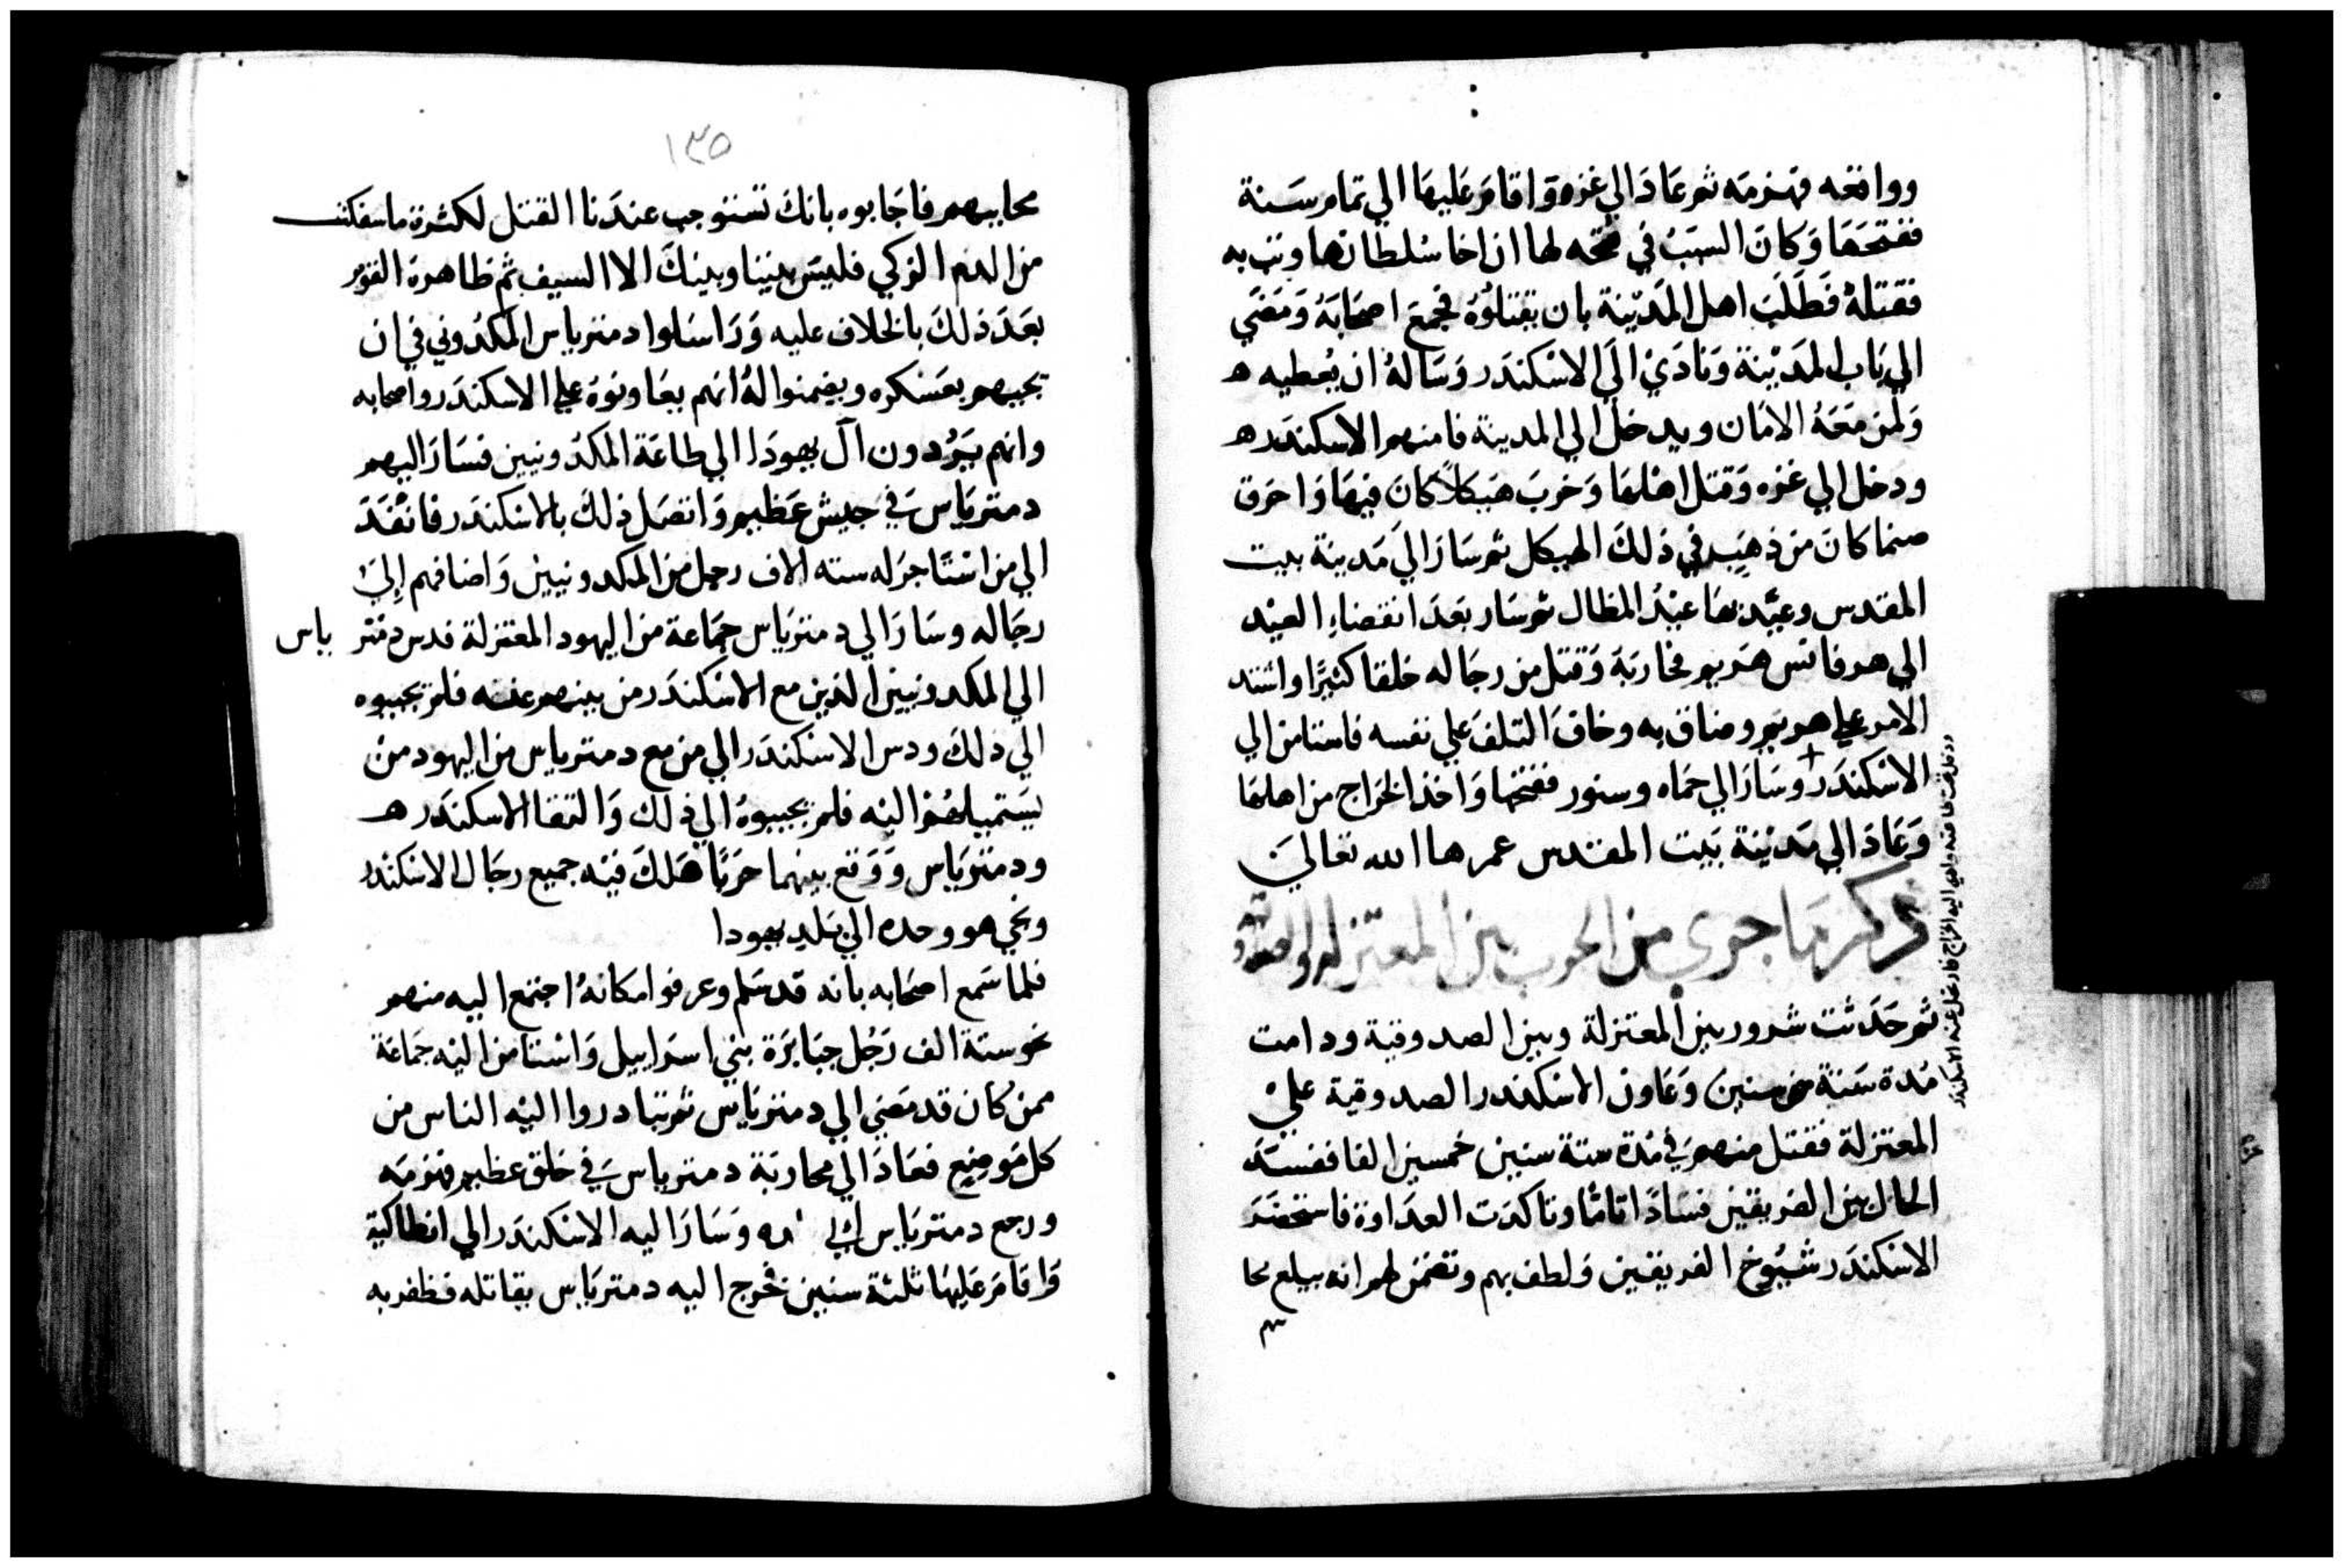 وواقعه فهزمه ثم عَادَ الي غزه وَاقامَ عَليهَا الي تمام سَنة
ففتحَهَا وَكانَ السبَبُ في فتحه لها ان اخا سُلطانها وثب به
فقتلهُ فَطلَبَ اهل المَديْنة بان يقتلوُهُ فجمعَ اصحَابَهُ وَمَضَي
الي بَاب المَديْنة وَنادَيْ اليَ الاسْكندَر وَسَالهُ ان يُعطيه ه
وَلمَن مَعَهُ الامَان ويدخلُ الي المدينة فامنهم الاسكندَر ه
ودخل الي غزه وَقتل اهْلهَا وَخربَ هَيكلاً كانَ فيهَا وَاحرَق
صنما كانَ من ذهَبٍ في ذلكَ الهيكل ثم سَارَ اليَ مَدينة بيت
المقدس وعيَّد بهَا عيْدُ المظال ثم سَار بعَدَ انقضاءِ العيْد
الي هرفانس هَريم فحاربَهَ وَقتل من رجَاله خلقا كثيرًا واشتد
الامر علي هريم وضاق به وخافَ التلفَ علي نفسه فاستامن الي
الاسْكندَر + وسَارَ الي حمَاه وسنور ففتحها وَاخذ الخرَاج من اهلهَا
وَعَادَ الي مَديْنة بَيت المقدس عمرها الله تعاليَ
ذكر مَا جري من الحرب بين المعتزله والصدوقيه
ثم حَدَثت شرور بين المعتزلة وبين الصدوقية ودامت
مُدة سَنة سنين وَعَاون الاسكندر الصدوقية عليْ
المعتزلة فقتل منهم في مُدة ستة سنين خمسين الفا ففسَدَ
الحال بين الفريقين فسَادًا تامًا وتاكدَت العدَاوة فاستحضَرَ
الاسْكندَر شيُوخ الفريقين وَلطف بهم وتضمن لهم انه يبلغ محا
١٣٥
محابيهم فاجَابوه بانكَ تستوجب عندَنا القتل لكثرة ما سفكت
من الدم الزكي فليسَ بيننا وبينكَ الا السيف ثم ظاهرهَ القوْم
بعَدَ ذلكَ بالخلاف عليه وَرَاسَلوا دمتريَاس المكدُوني في ان
يجيهم بعَسْكره ويضمنوا لهُ انهم يعَاونوهُ علي الاسكندَر واصحابه
وانهم يَرُدون آل يهودَا الي طاعَة المكدُونيين فسَارَ اليهم
دمتريَاسَ في جيش عَظيم وَاتصَل ذلكَ بالاسْكندَر فانفَذَ
الي من اسْتاجر له سته الاف رجل من المكدونيين وَاضافهم إليَ
رجَاله وسَارَ الي دمتريَاس جمَاعة من اليهود المعتزلة فدس دمتر ياس
الي المكدونيين الذين مع الاسْكندَر من يبنهم عنه فلم يجيبوه
الي ذلكَ ودس الاسْكندَر الي من مع دمترياس من اليهود منْ
يسَتميلهُم اليْه فلم يجيبوهُ الي ذلك وَالتقا الاسكندَر ه
ودمتريَاس وَوَقع بينهما حرَبًا هَلكَ فيْه جميع رجَال الاسْكندر
ونجي هو وحده الي بَلدِ يهودا
فلما سَمع اصحَابه بانه قد سَلم وعرفوا مكانهُ اجتمع اليه منهم
نحو ستة الف رَجُل جبَابرَة بني اسرَاييل وَاسْتامن اليْه جمَاعَة
ممن كان قد مَضي الي دمتريَاس ثم تبادروا اليْه الناس من
كل مَوضِع فعَادَ الي محاربَة دمترياسَ في خلق عظيم فهزمَه
ورجع دمتريَاس الي وَسَارَ اليه الاسْكندَر الي انطاكية
وَاقامَ عَليهَا ثلثة سنين فخرج اليه دمتريَاس يقاتله فظفر به